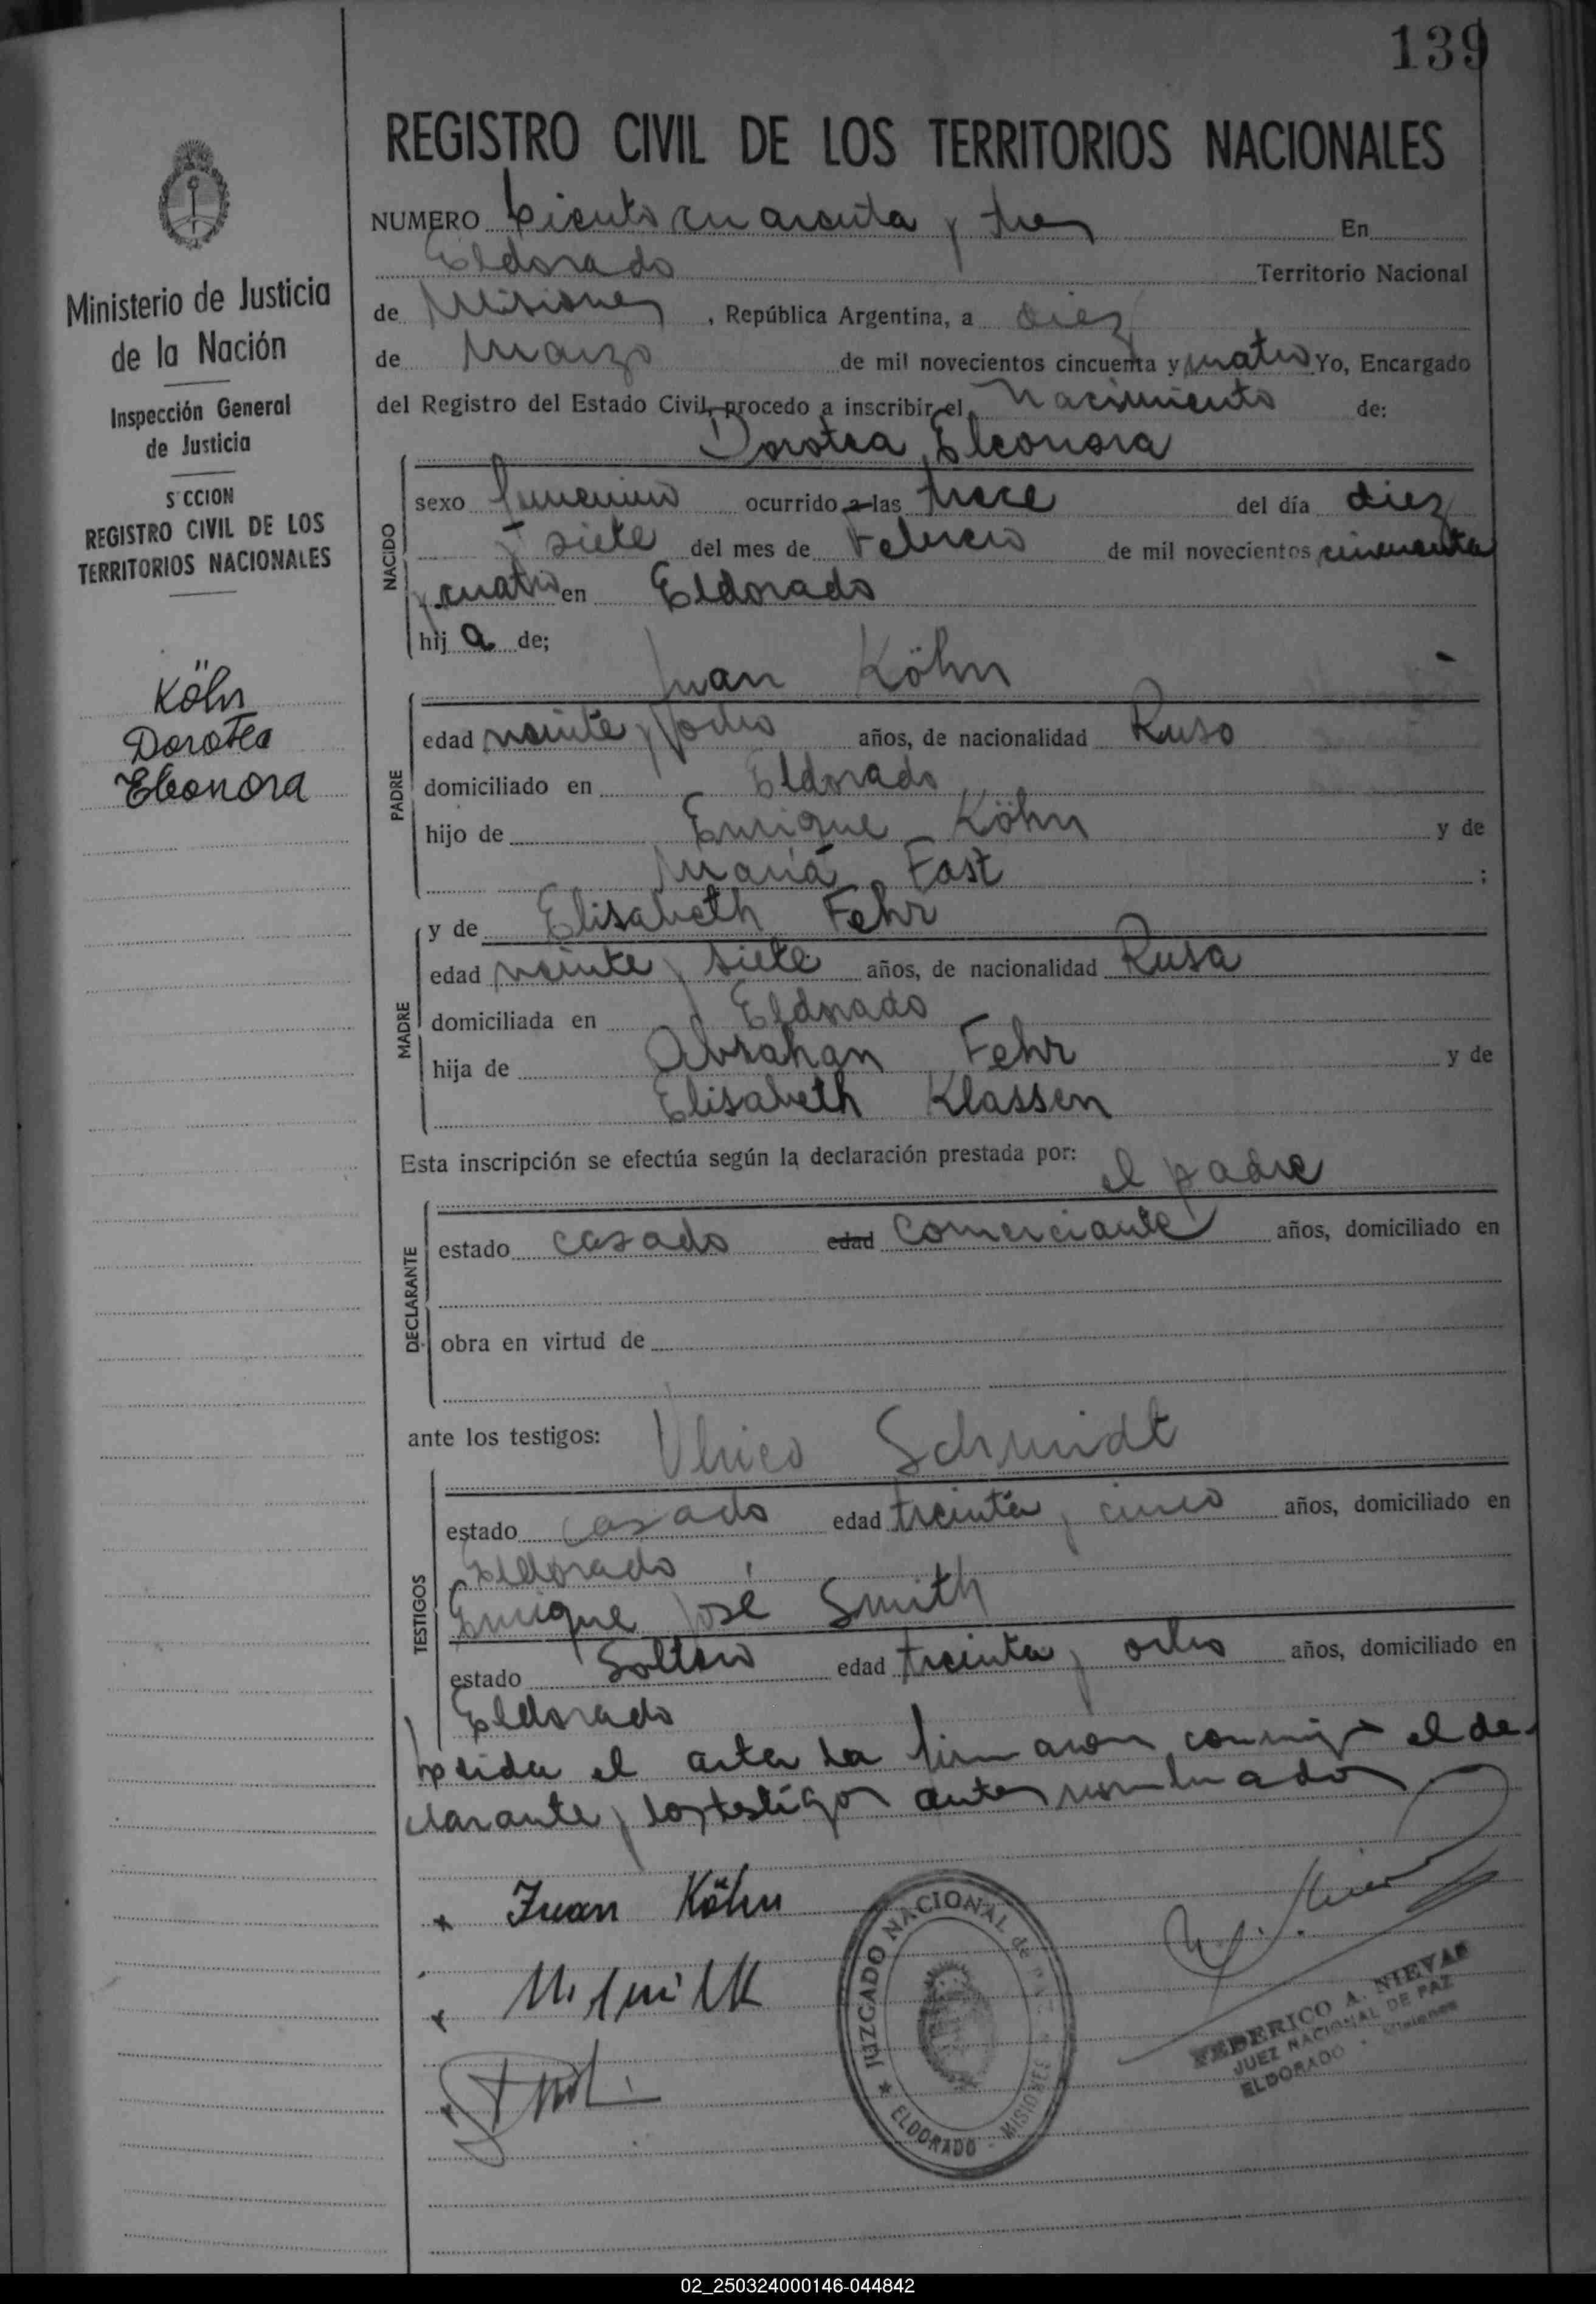 139
REGISTRO CIVIL DE LOS TERRITORIOS NACIONALES
NUMERO Ciento cuarenta y tres En
Eldorado Territorio Nacional
de Misiones, República Argentina, a diez
de Marzo de mil novecientos cincuenta y cuatro Yo, Encargado
del Registro del Estado Civil, procedo a inscribir el Nacimiento de:
Dorotea Eleonora
NACIDO
sexo femenino ocurrido a las trece del día diez
y siete del mes de Febrero de mil novecientos cincuenta
y cuatro en Eldorado
hij a de;
Juan Köhn
PADRE
edad veinte y ocho años, de nacionalidad Ruso
domiciliado en Eldorado
hijo de Enrique Köhn y de
María Fast ;
y de Elisabeth Fehr
MADRE
edad veinte y siete años, de nacionalidad Rusa
domiciliada en Eldorado
hija de Abrahan Fehr y de
Elisabeth Klassen
Esta inscripción se efectúa según la declaración prestada por: el padre
DECLARANTE
estado casado edad comerciante años, domiciliado en
obra en virtud de
ante los testigos: Ulrico Schmidt
TESTIGOS
estado casado edad treinta y cinco años, domiciliado en
Eldorado
Enrique José Smith
estado Soltero edad treinta y ocho años, domiciliado en
Eldorado
Leida el acta la firmaron conmigo el de-
clarante y los testigos antes nombrados
Juan Köhn
JUZGADO NACIONAL de PAZ
ELDORADO - MISIONES
FEDERICO A. NIEVAS
JUEZ NACIONAL DE PAZ
ELDORADO - Misiones
Ministerio de Justicia
de la Nación
Inspección General
de Justicia
S CCION
REGISTRO CIVIL DE LOS
TERRITORIOS NACIONALES
Köhn
Dorotea
Eleonora
02_250324000146-044842